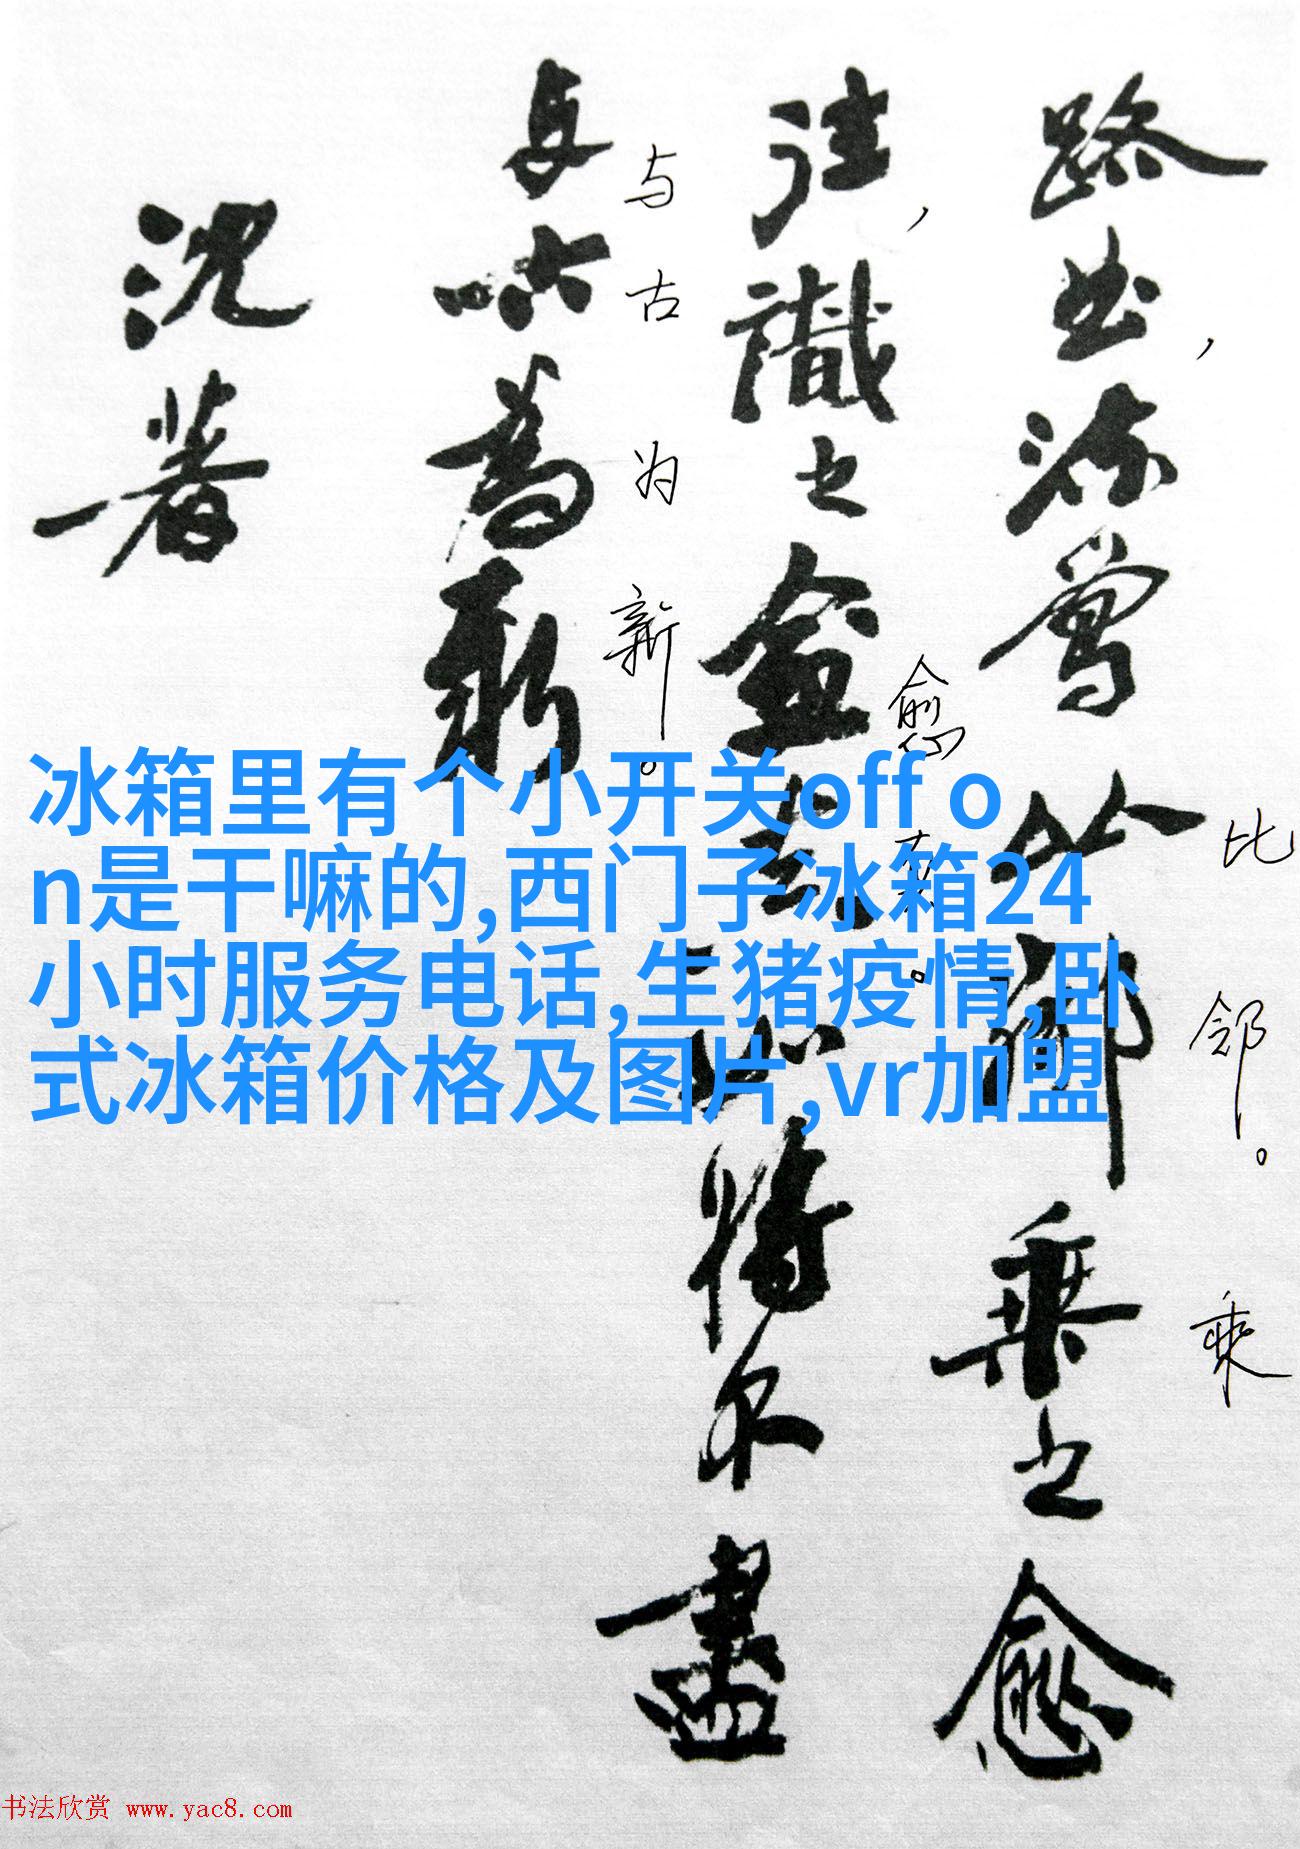 路曲，流鶯比鄰乘之愈
往，識之愈真如將不盡
与古為新
沈著
比邻。乘
愈真。
与古为新。
冰箱里有个小开关off o
n是干嘛的,西门子冰箱24
小时服务电话,生猪疫情,卧
式冰箱价格及图片,vr加盟
书法欣赏 www.yac8.com